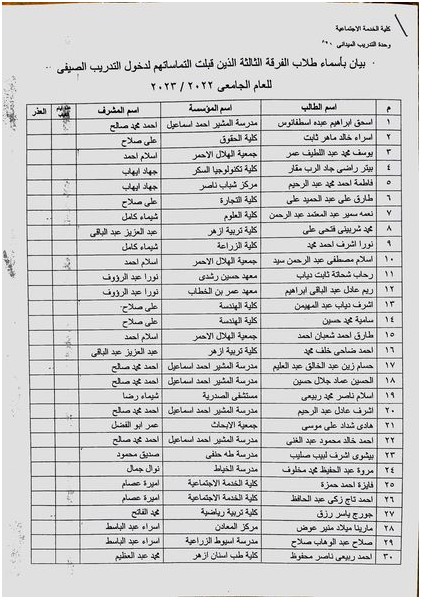 كلية الخدمة الاجتماعية
وحدة التدريب الميدانى
بيان بأسماء طلاب الفرقة الثالثة الذين قبلت التماساتهم لدخول التدريب الصيفى
للعام الجامعى ٢٠٢٢ / ٢٠٢٣
م اسم الطالب اسم المؤسسة اسم المشرف العذر
١ اسحق ابراهيم عبده اسطفانوس مدرسة المشير احمد اسماعيل احمد محمد صالح
٢ اسراء خالد ماهر ثابت كلية الحقوق على صلاح
٣ يوسف محمد عبد اللطيف عمر جمعية الهلال الاحمر اسلام احمد
٤ بيتر راضى جاد الرب مقار كلية تكنولوجيا السكر جهاد ايهاب
٥ فاطمة احمد محمد عبد الرحيم مركز شباب ناصر جهاد ايهاب
٦ طارق على عبد الحميد على كلية التجارة على صلاح
٧ نعمه سمير عبد المعتمد عبد الرحمن كلية العلوم شيماء كامل
٨ محمد شربينى فتحى على كلية تربية ازهر عبد العزيز عبد الباقى
٩ نورا اشرف احمد محمد كلية الزراعة شيماء كامل
١٠ اسلام مصطفى عبد الرحمن سيد جمعية الهلال الاحمر اسلام احمد
١١ رحاب شحاتة ثابت دياب معهد حسين رشدى نورا عبد الرؤوف
١٢ ريم عادل عبد الباقى ابراهيم معهد عمر بن الخطاب نورا عبد الرؤوف
١٣ اشرف دياب عبد المهيمن كلية الهندسة على صلاح
١٤ سامية محمد حسين كلية الهندسة على صلاح
١٥ طارق احمد شعبان احمد جمعية الهلال الاحمر اسلام احمد
١٦ احمد ضاحى خلف محمد كلية تربية ازهر عبد العزيز عبد الباقى
١٧ حسام زين عبد الخالق عبد العليم مدرسة المشير احمد اسماعيل احمد محمد صالح
١٨ الحسين عماد جلال حسين مدرسة المشير احمد اسماعيل احمد محمد صالح
١٩ اسلام ناصر محمد ربيعى مستشفى الصدرية شيماء رضا
٢٠ اشرف عادل عبد الرحيم مدرسة المشير احمد اسماعيل احمد محمد صالح
٢١ هادى شداد على موسى جمعية الابحاث عمر ابو الفضل
٢٢ احمد خالد محمود عبد الغنى مدرسة المشير احمد اسماعيل احمد محمد صالح
٢٣ بيشوى اشرف لبيب صليب مدرسة طه حنفى صديق محمود
٢٤ مروة عبد الحفيظ محمد مخلوف مدرسة الخياط نوال جمال
٢٥ فايزة احمد حمزة كلية الخدمة الاجتماعية اميرة عصام
٢٦ احمد تاج زكى عبد الحافظ كلية الخدمة الاجتماعية اميرة عصام
٢٧ جورج ياسر رزق كلية تربية رياضية محمد الفاتح
٢٨ مارينا ميلاد منير عوض مركز المعادن اسراء عبد الباسط
٢٩ صلاح عبد الوهاب صلاح مدرسة اسيوط الزراعية اسراء عبد الباسط
٣٠ احمد ربيعى ناصر محفوظ كلية طب اسنان ازهر محمد عبد العظيم